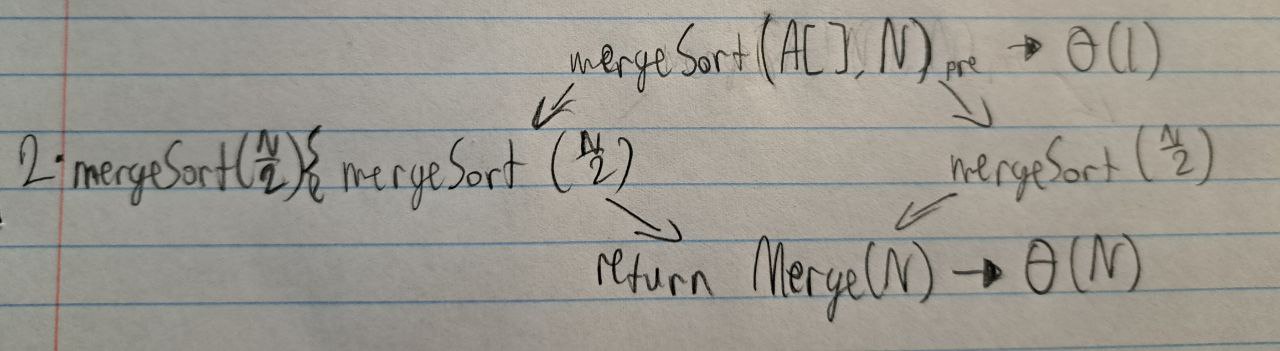 mergeSort(A[], N)pre → θ(1)
2·mergeSort(N/2){ mergeSort (N/2) mergeSort (N/2)
return Merge(N) → θ(N)